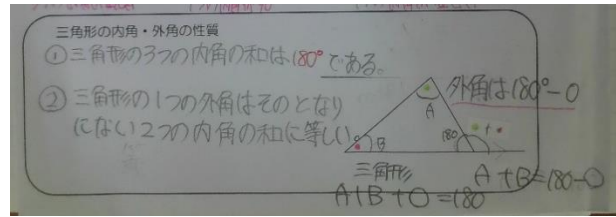 三角形の内角・外角の性質
①三角形の3つの内角の和は180°である。
②三角形の1つの外角はそのとなり
にない2つの内角の和に等しい
外角は180°-O
A
B
180
三角形
A+B+O=180
A+B=180-O